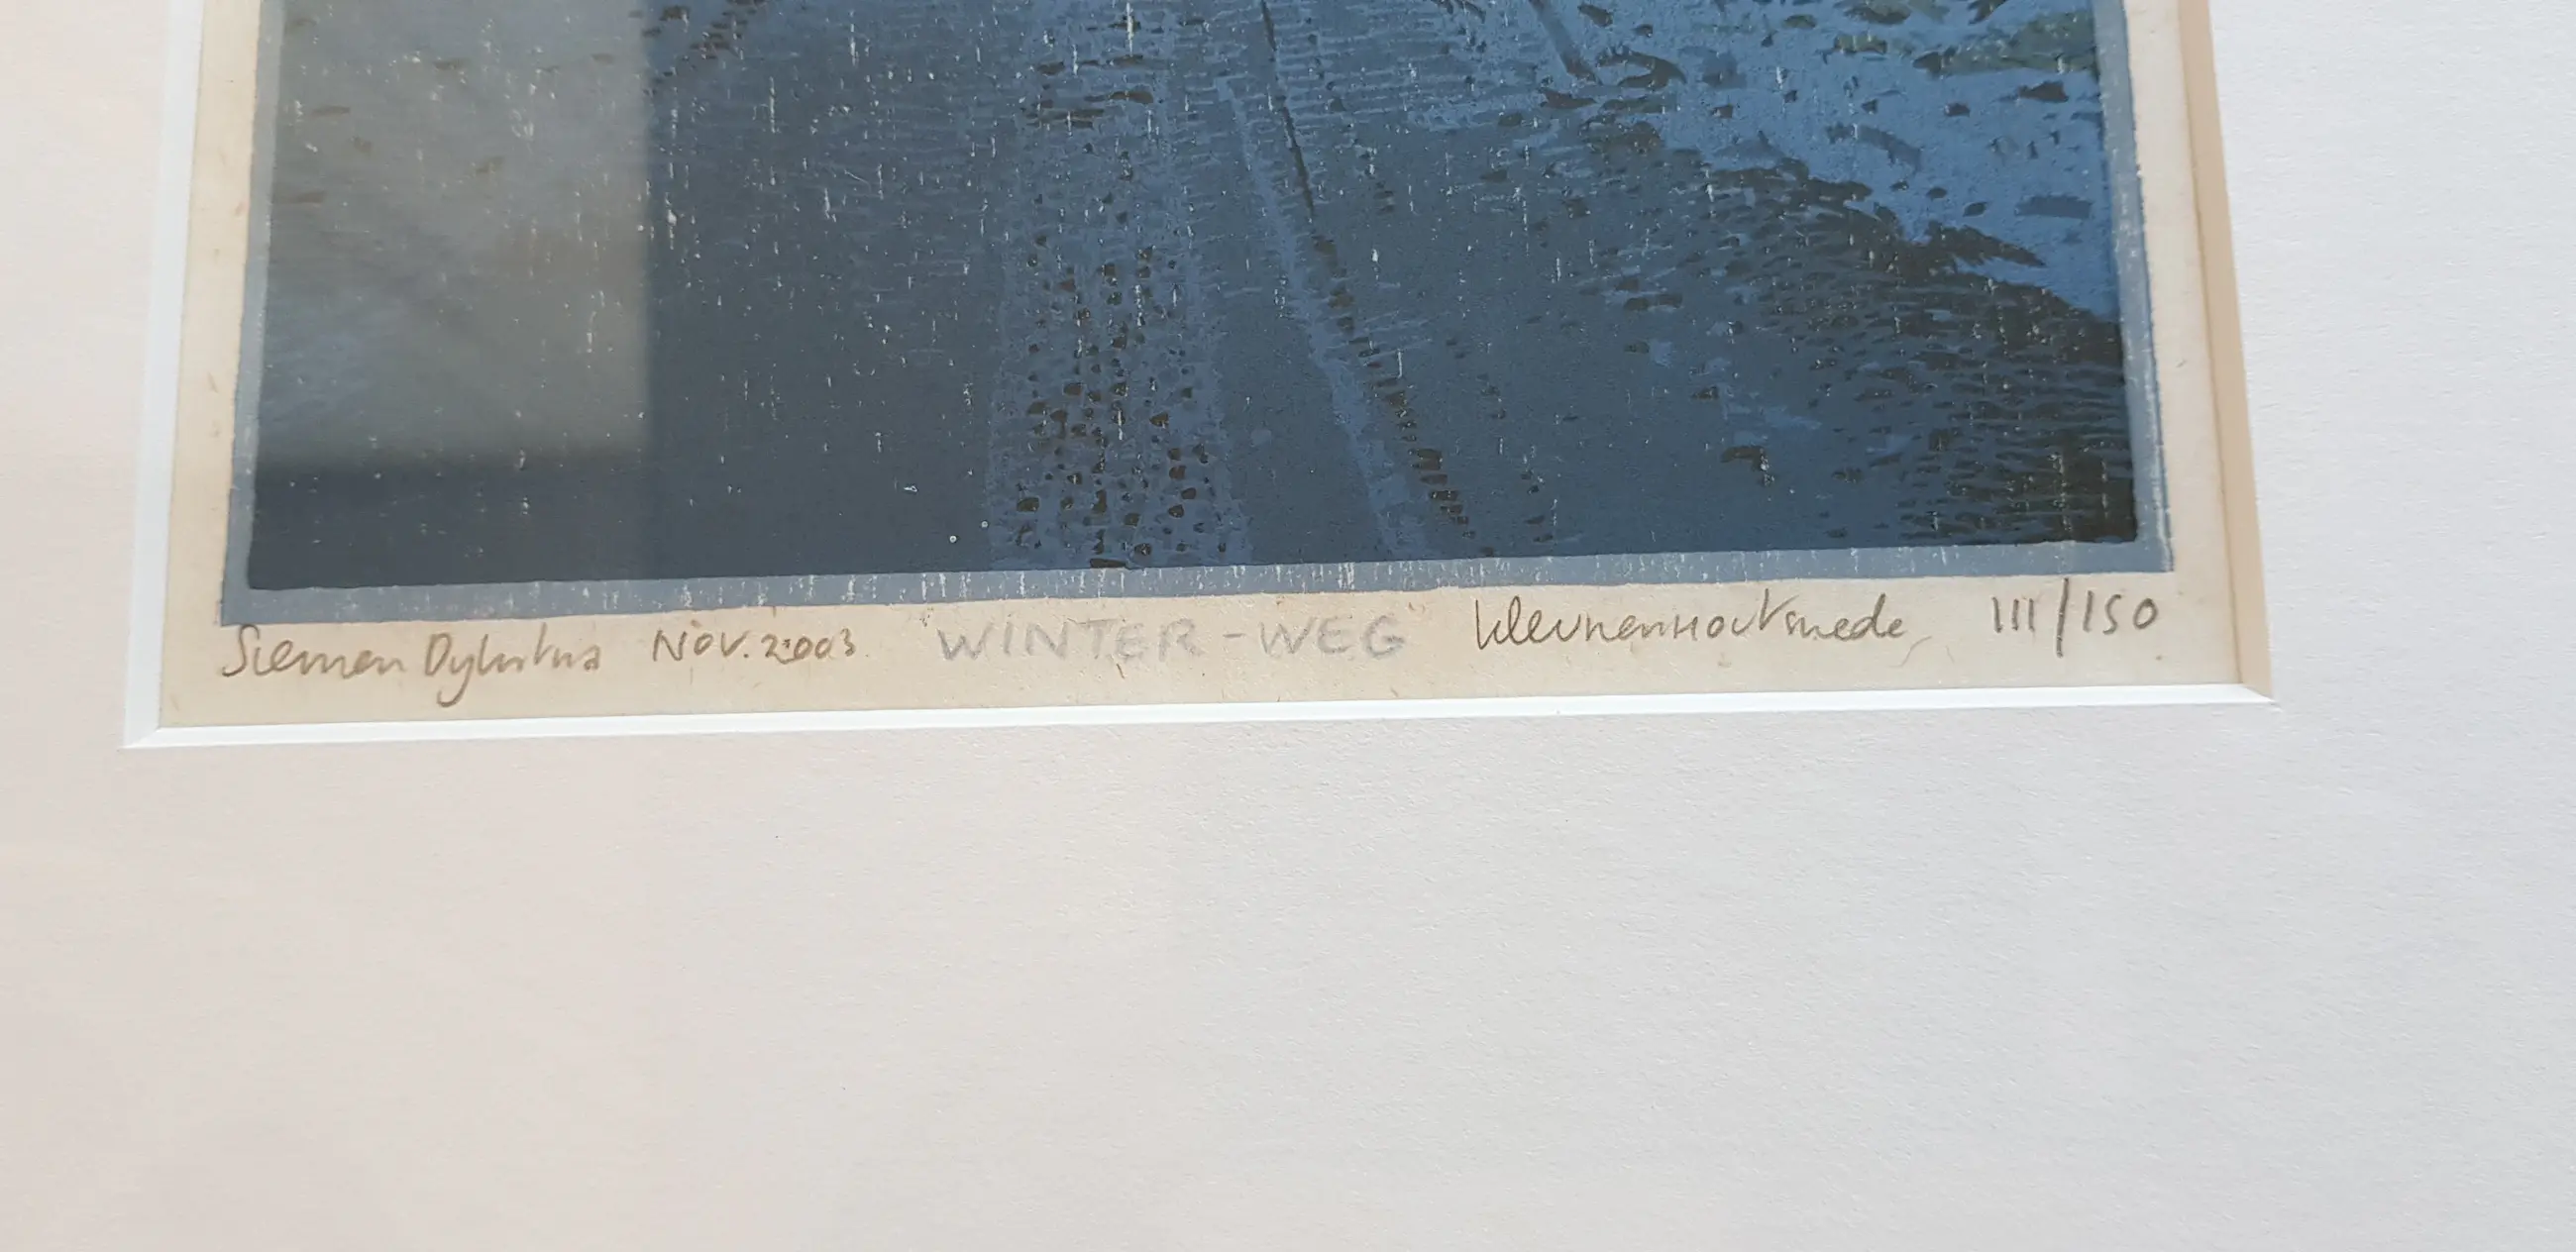 Siemen Dijkstra NOV. 2003. WINTER-WEG kleurenhoutsnede, 111/150